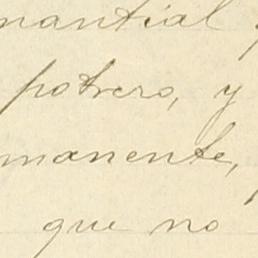 manantial
potrero, y
manente,
que no